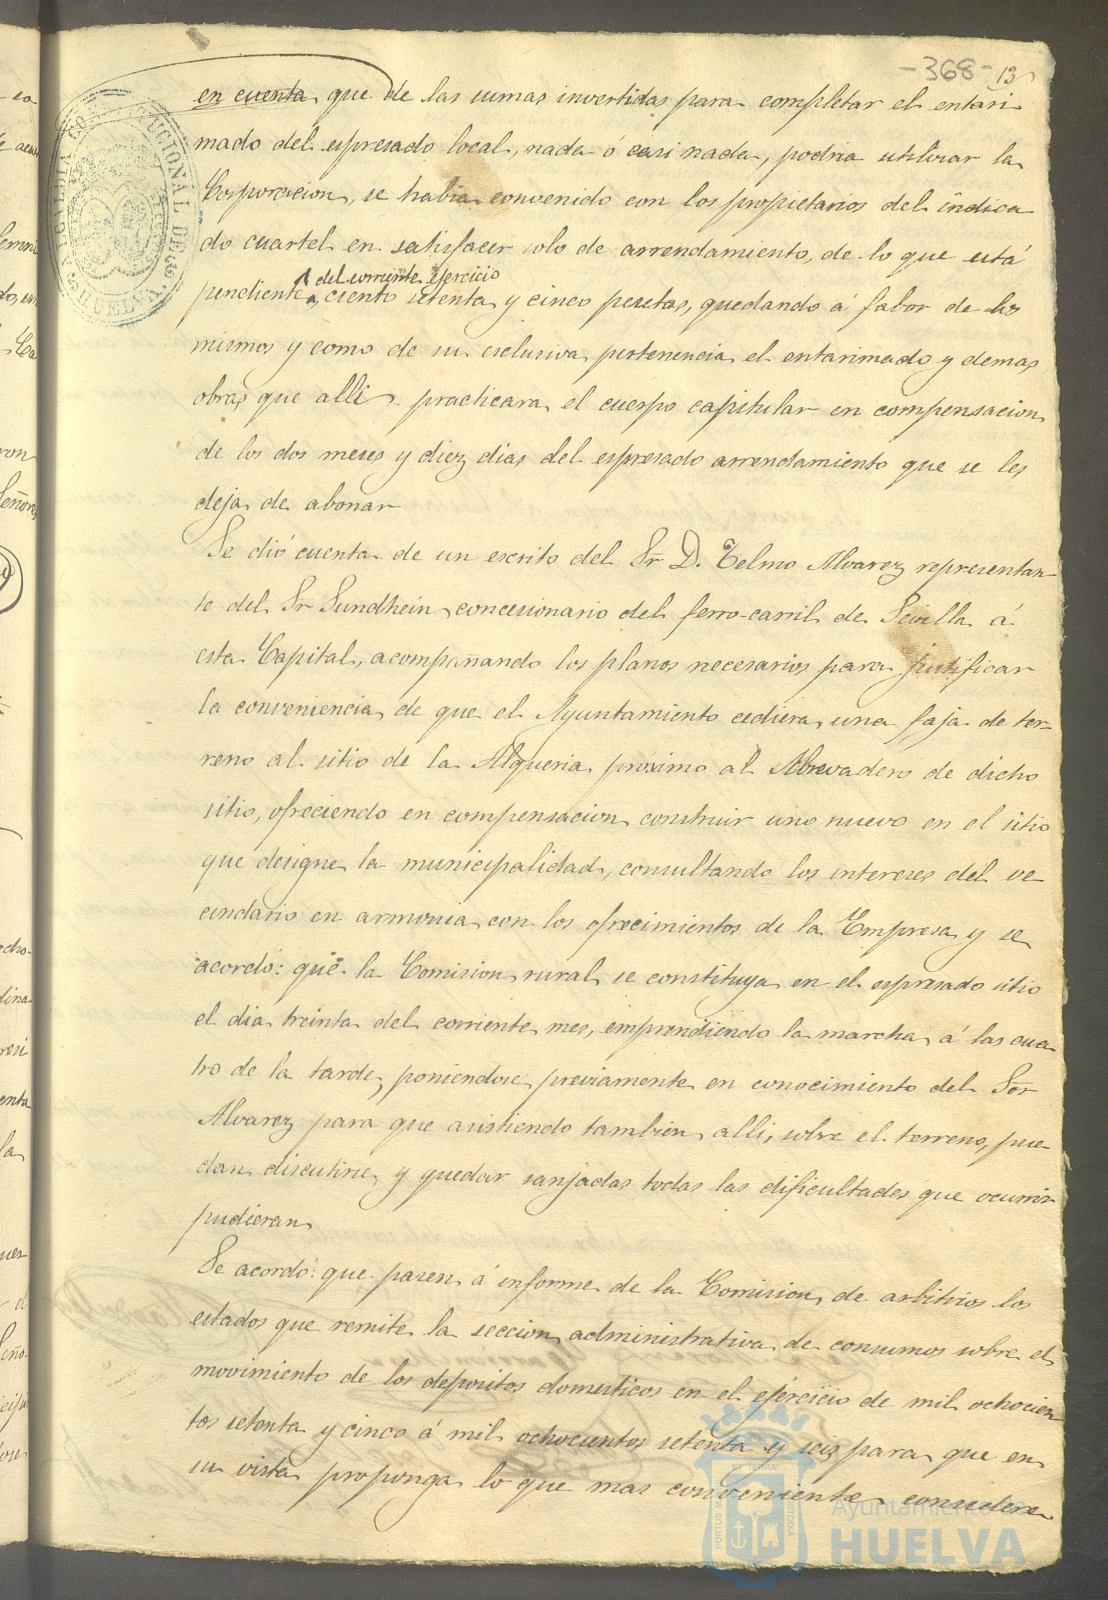 -368- 13
en cuenta que de las sumas invertidas para completar el entari
mado del espresado local, nada ó casi nada, podria utilizar la
Corporacion, se habia convenido con los propietarios del indica
do cuartel en satisfacer solo de arrendamiento, de lo que está
del corriente ejercicio
pendiente ciento setenta y cinco pesetas, quedando á fabor de los
mismos y como de su esclusiva pertenencia el entarimado y demas
obras que alli practicara el cuerpo capitular en compensacion
de los dos meses y diez dias del espresado arrendamiento que se les
deja de abonar
Se dió cuenta de un escrito del Sr. D. Telmo Alvarez representan-
te del Sr Sundhein concesionario del ferro-carril de Sevilla á
esta Capital, acompañando los planos necesarios para justificar
la conveniencia de que el Ayuntamiento cediera una faja de ter-
reno al sitio de la Alqueria próximo al Abrevadero de dicho
sitio, ofreciendo en compensacion construir uno nuevo en el sitio
que designe la municipalidad, consultando los intereses del ve
cindario en armonia con los ofrecimientos de la Empresa y se
acordó: que la Comision rural se constituya en el espresado sitio
el dia treinta del corriente mes, emprendiendo la marcha á las cua
tro de la tarde, poniendose previamente en conocimiento del Sor
Alvarez para que asistiendo tambien alli, sobre el terreno, pue-
dan discutirse y quedar sanjadas todas las dificultades que ocurrir
pudieran
Se acordó: que pasen á informe de la Comision de arbitrios los
estados que remite la seccion administrativa de consumos sobre el
movimiento de los depositos domesticos en el ejercicio de mil ochocien
tos setenta y cinco á mil ochocientos setenta y seis para que en
su vista proponga lo que mas conveniente considere
Ayuntamiento
HUELVA